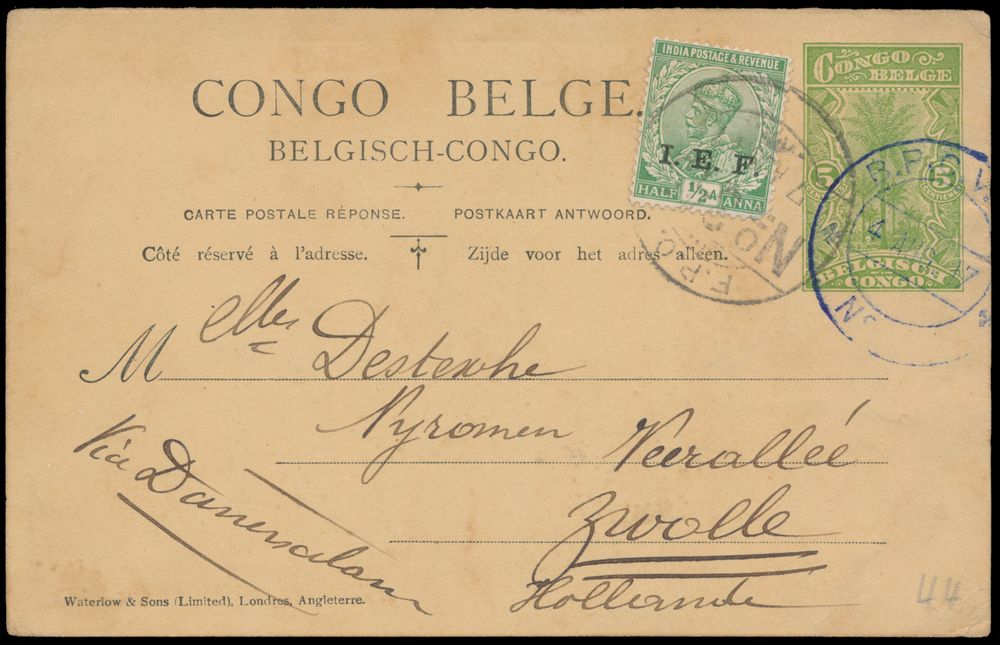 CONGO BELGE.
BELGISCH-CONGO.
CARTE POSTALE RÉPONSE. POSTKAART ANTWOORD.
Côté réservé à l'adresse. Zijde voor het adres alleen.
INDIA POSTAGE & REVENUE
I. E. F.
HALF ½A ANNA
CONGO
BELGE
5 5
BELGISCH
CONGO
F.P.O.
No
B.P.C.V.
4 17
M elles Destexhe
Nyromen Veerallée
Zwolle
Hollande
Via Daressalam
Waterlow & Sons (Limited), Londres, Angleterre.
44